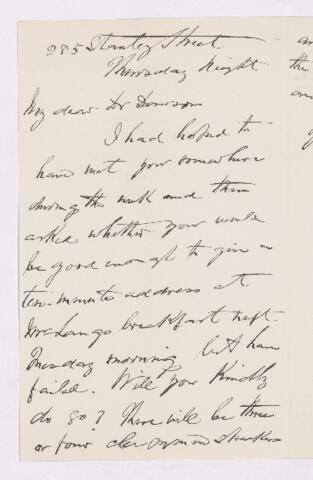 285 Stanley Street
Thursday Night
My dear Dr Dawson
I had hoped to
have met you somewhere
during the week and then
asked whether you would
be good enough to give a
ten-minute address at
breakfast next
Tuesday morning but have
failed. Will you Kindly
do so? There will be three
or four clergymen speakers
the